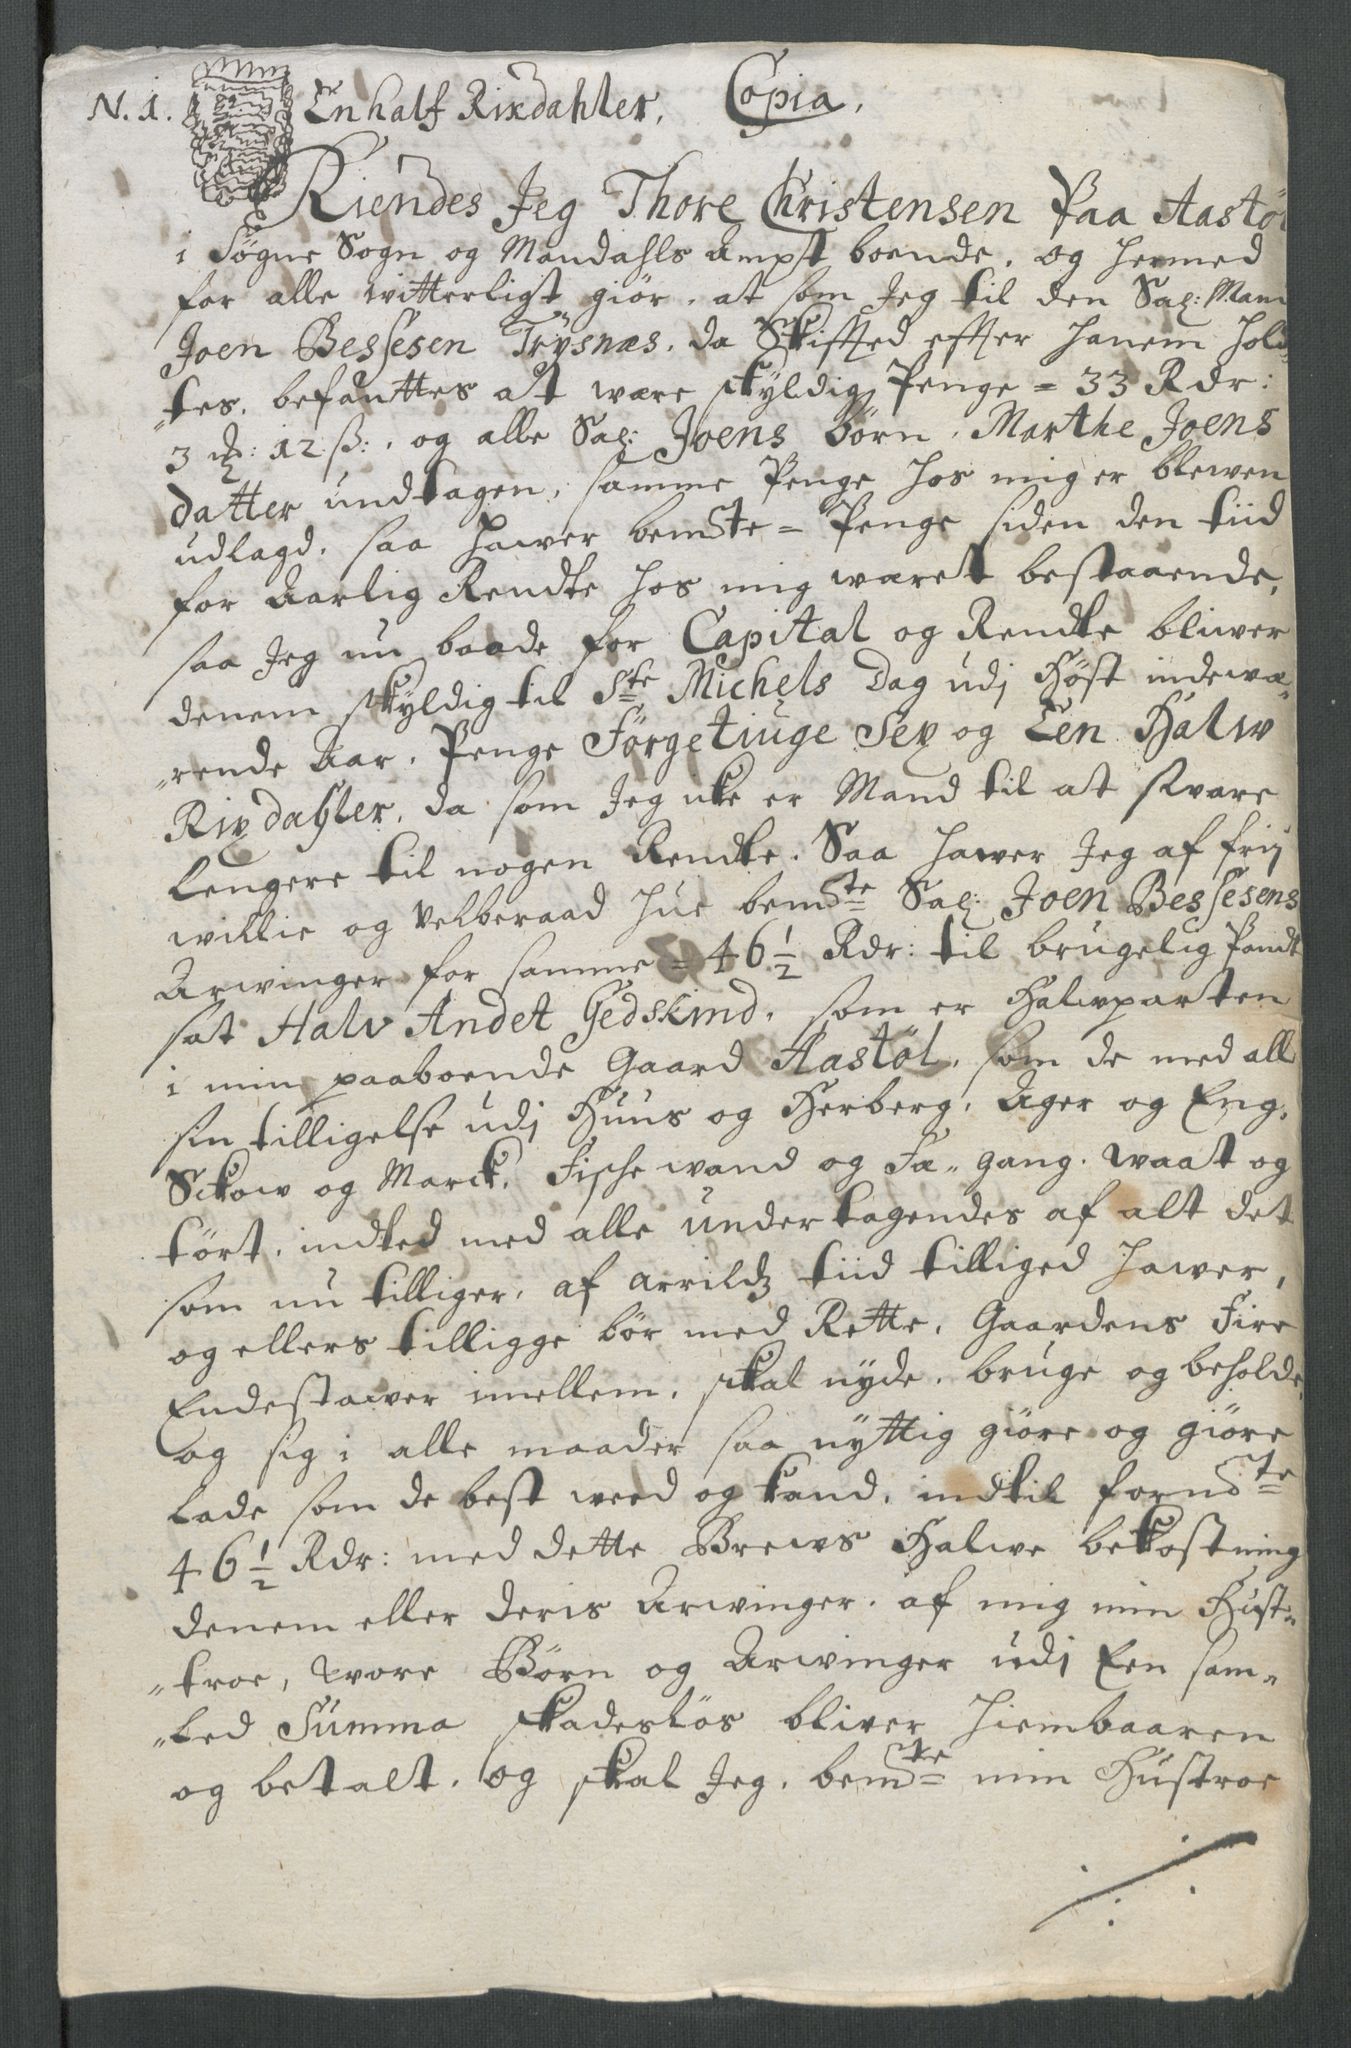 N. 1. En half Rixdahler. Copia.
Kiendes Jeg Thore Christensen Paa Aastöl
i Søgne Sogn og Mandahls Ampt boende, og hermed
for alle witterligt giør, at som Jeg til den Sal: Mand
Joen Bessesen Trysnæs, da Skifted effter hanem hold„
„tes, befanttes at were skyldig Penge = 33 Rdr:
3 ℔: 12 ß:, og alle Sal: Joens börn, Marthe Joens
datter undtagen, samme Penge hos mig er blewen
udlagd, saa hawer bemte = Penge siden den tiid
for Aarlig Rendte hos mig wæret bestaaende,
saa Jeg nu baade for Capital og Rendte bliwer
denem skyldig til Ste Michels Dag udj Høst indewæ„
„rende Aar, Penge Förgetiuge Sex og Een Halw
Rixdahler, da som Jeg icke er Mand til at svare
lengere til nogen Rendte. Saa hawer Jeg af frij
willie og velberaad hue bemte Sal: Joen Bessesens
Arwinger for samme = 46 1/2 Rdr: til brugelig Pandt
sat Halv Andet Gedskind, som er Halwparten
i min paaboende Gaard Aastöl, som de med all
sin tilligelse udj Huus og Herberg, Ager og Eng,
Skow og Marck, Fische wand og Fæ„gang, waat og
tørt, indted med alle undertagendes af alt det
som nu tilliger, af arrildz tiid tilliged hawer,
og ellers tilligge bør med Rette, Gaardens Fire
Endestawer imellem, skal nyde, bruge og beholde,
og sig i alle maader saa nyttig giöre og giöre
lade som de best weed og kand, indtil fornte
46 1/2 Rdr: med dette Brews Halwe bekostning
denem eller deris Arwinger, af mig min Hust„
„troe, wore Børn og Arwinger udj Een sam„
„led Summa skadesløs bliver hiembaaren
og betalt, og skal Jeg, bemte min Hustroe